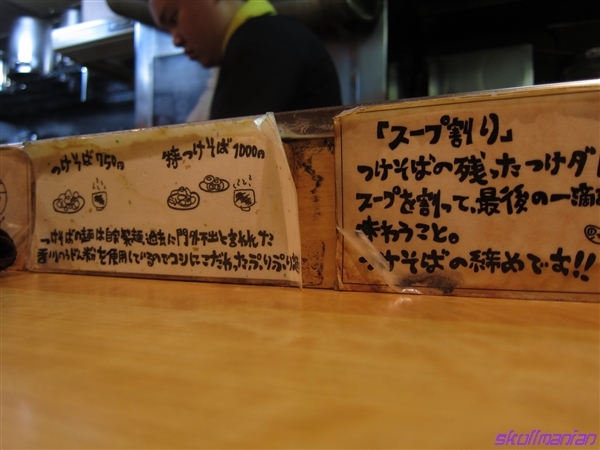 つけそば 750円
特つけそば 1000円
つけそばの麺は自家製麺、過去に門外不出と言われた
香川のうどん粉を使用しているのでコシにこだわったぷりぷり
「スープ割り」
つけそばの残ったつけダレ
スープを割って、最後の一滴
味わうこと。
つけそばの締めです!!
skullmanian